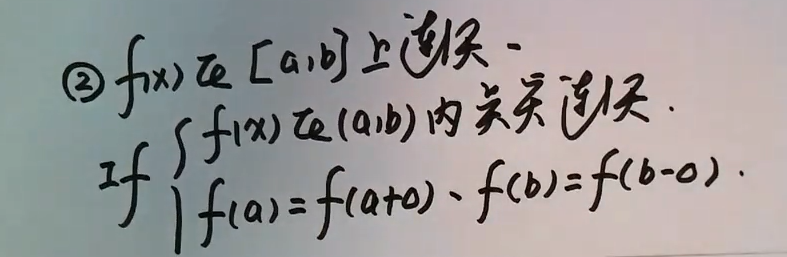 ② f(x)在[a,b]上连续-
If { f(x)在(a,b)内点点连续.
f(a)=f(a+0)、f(b)=f(b-0).